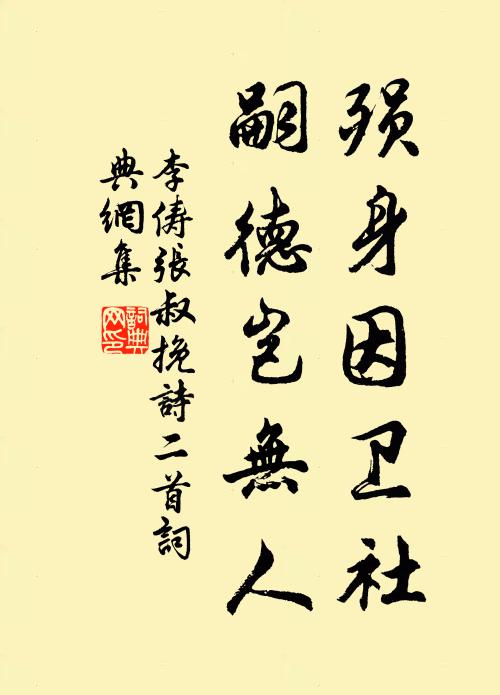 殒身因卫社
嗣德岂無人
李俦張叔挽詩二首詞
典網集
詞典网印